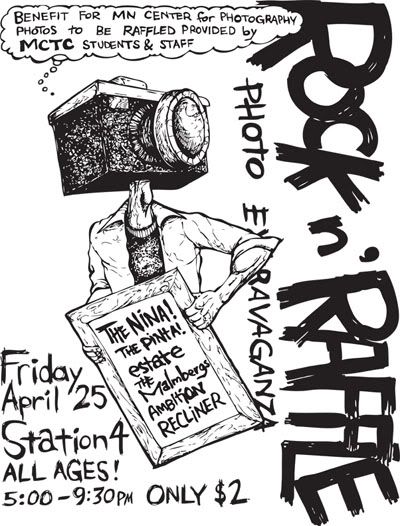 BENEFIT FOR MN CENTER for PHOTOGRAPHY
PHOTOS TO BE RAFFLED PROVIDED by
MCTC STUDENTS & STAFF
ROCK n' RAFFLE
PHOTO EXTRAVAGANZA
THE NINA!
THE PINTA!
estate
THE Malmbergs
AMBITION
RECLINER
Friday
April 25
Station 4
ALL AGES!
5:00-9:30PM ONLY $2